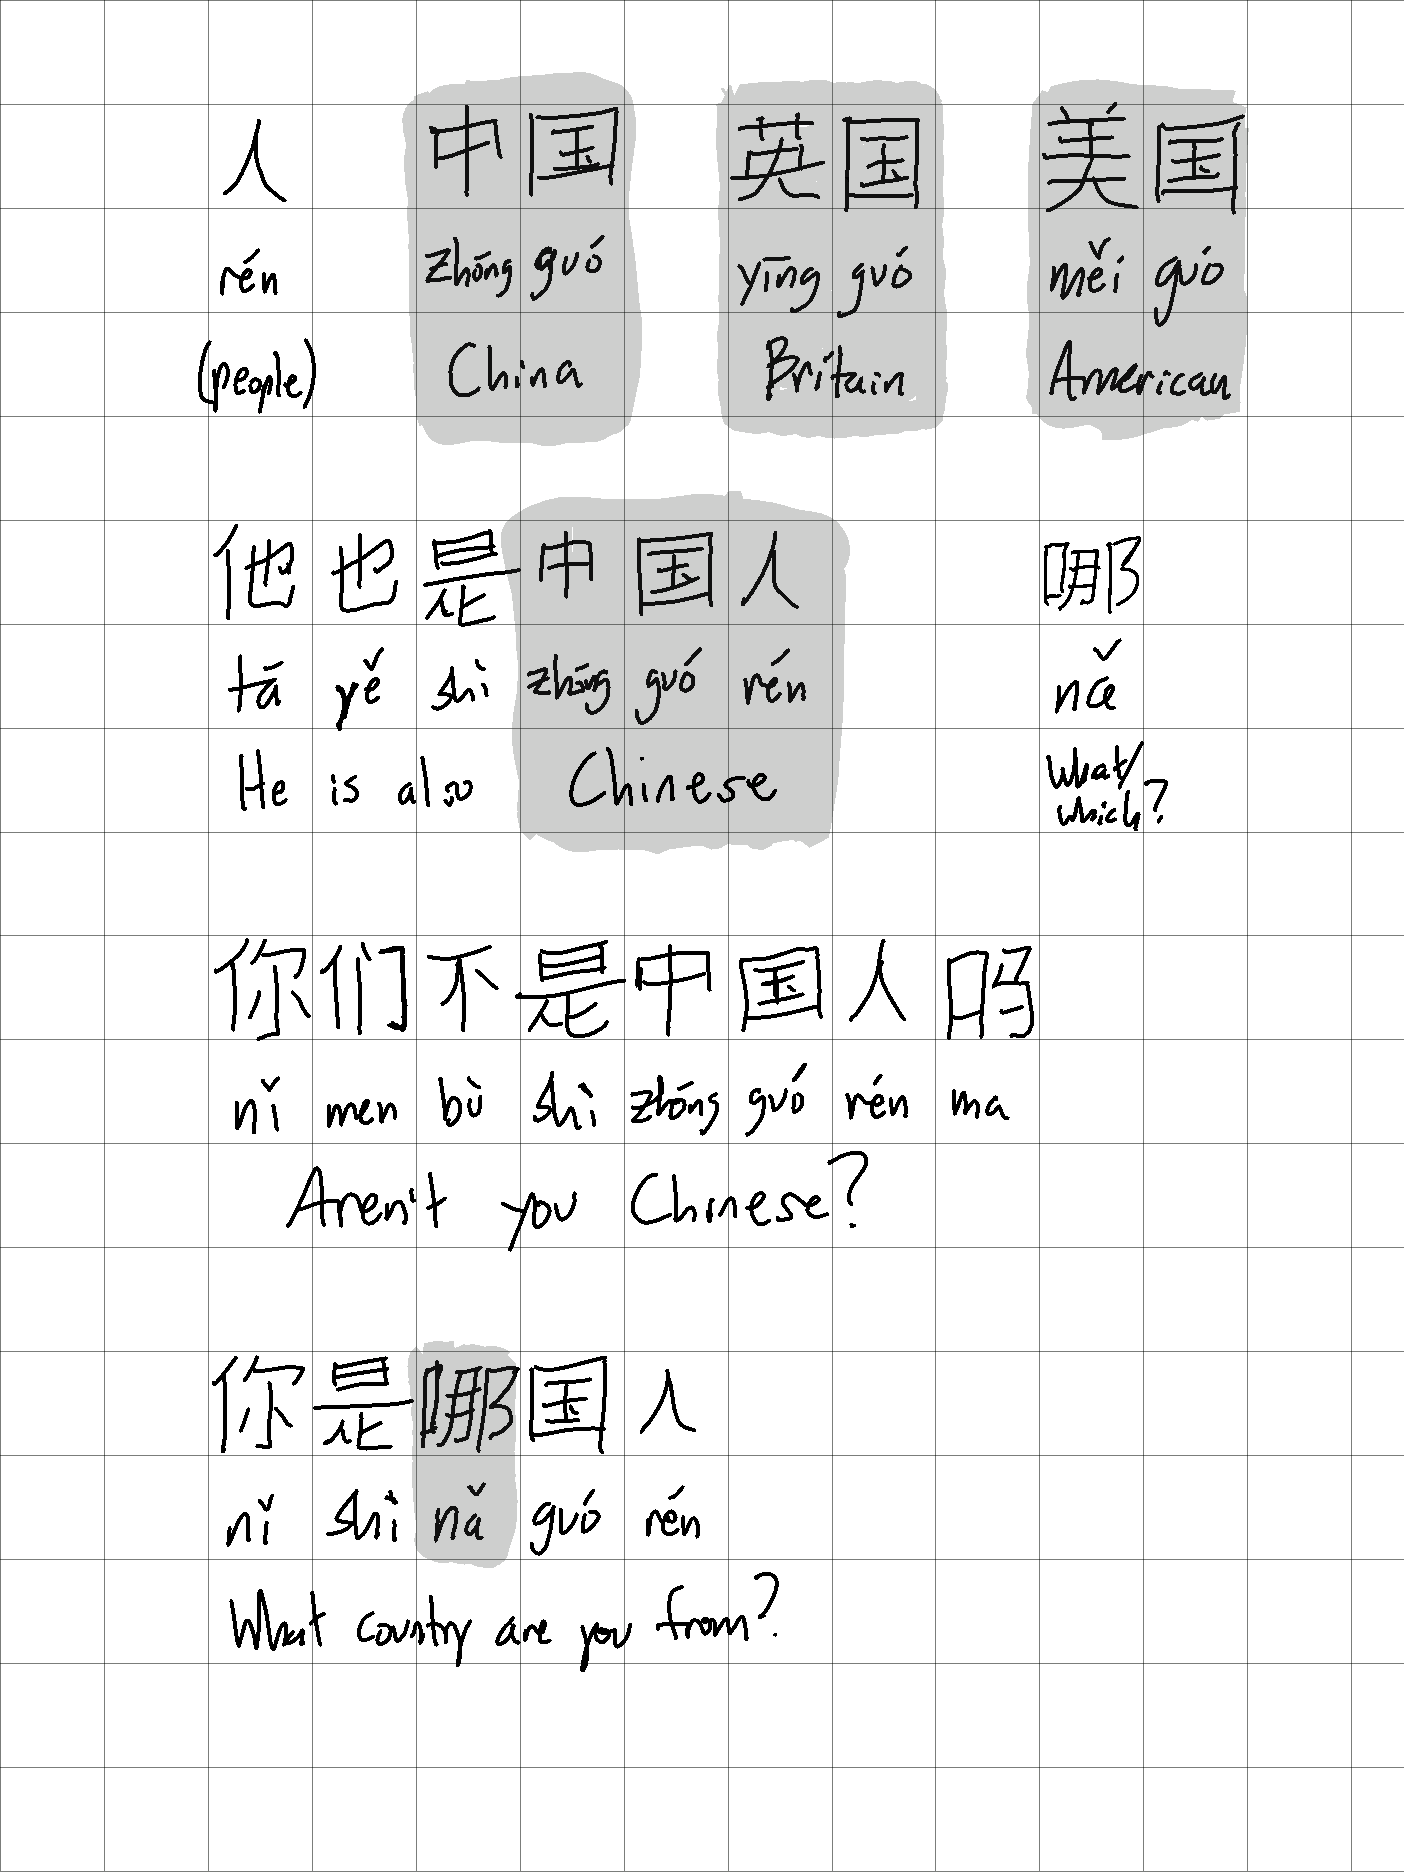 人 中国 英国 美国
rén zhōng guó yīng guó měi guó
(people) China Britain American
他也是中国人 哪
tā yě shì zhōng guó rén nǎ
He is also Chinese What/
which?
你们不是中国人吗
nǐ men bù shì zhōng guó rén ma
Aren't you Chinese?
你是哪国人
nǐ shì nǎ guó rén
What country are you from?